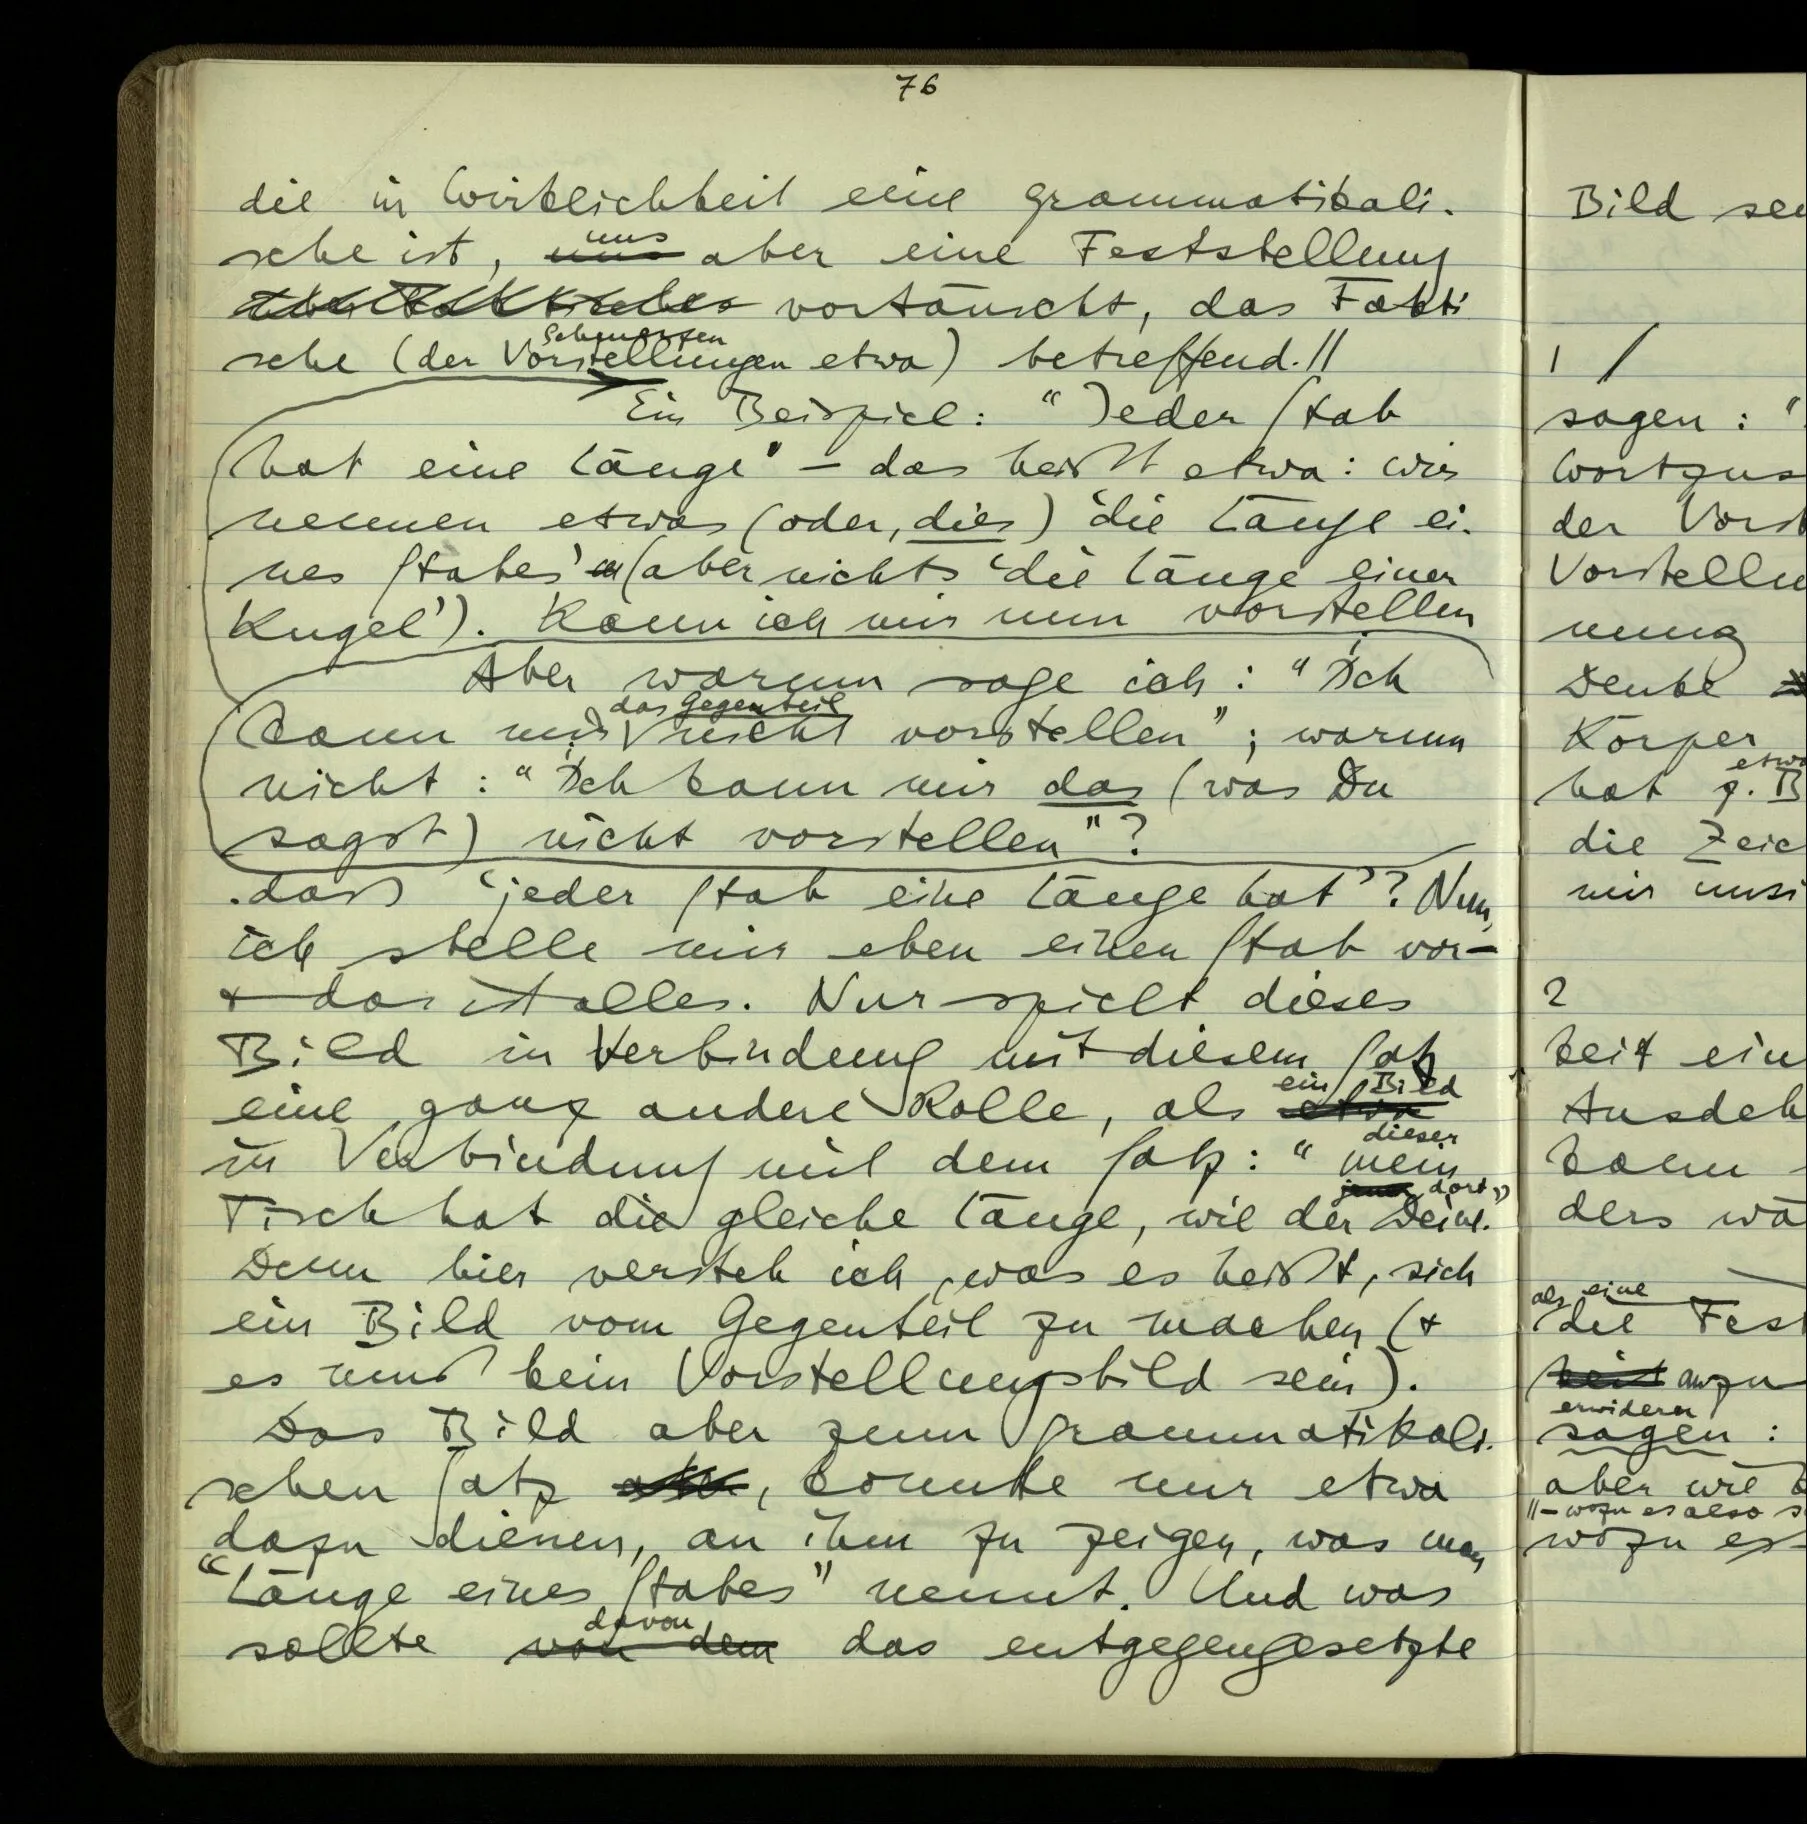 76
die in Wirklichkeit eine grammatikali-
sche ist, uns aber eine Feststellung
vortäuscht, das Fakti
Schmerzen
sche (der Vorstellungen etwa) betreffend.||
Ein Beispiel: "Jeder Stab
hat eine Länge" – das heißt etwa: wir
nennen etwas (oder, dies) 'die Länge ei-
nes Stabes' (aber nichts 'die Länge einer
Kugel'). Kann ich mir nun vorstellen
Aber warum sage ich: "Ich
das Gegenteil
kann mir nicht vorstellen"; warum
nicht: "Ich kann mir das (was Du
sagst) nicht vorstellen"?
daß 'jeder Stab eine Länge hat'? Nun,
ich stelle mir eben einen Stab vor –
+ das ist alles. Nur spielt dieses
Bild in Verbindung mit diesem Satz
ein Bild
eine ganz andere Rolle, als
dieser
in Verbindung mit dem Satz: "mein
jener dort"
Tisch hat die gleiche Länge, wie der Deine."
Denn hier versteh ich, was es heißt, sich
ein Bild vom Gegenteil zu machen (+
es muß kein Vorstellungsbild sein).
Das Bild aber zum grammatikali-
schen Satz, konnte nur etwa
dazu dienen, an ihm zu zeigen, was man
"Länge eines Stabes" nennt. Und was
davon
sollte von dem das entgegengesetzte
Bild sei
1 /
sagen: "
Wortzus
der Vorst
Vorstellu
nung
Denke
Körper
etwa
hat z.B
die Zeic
mir unsi
2
keit ein
Ausdeh
kann
ders wä
als eine
die Fest
anzu
erwidern
sagen:
aber wie
||– wozu es also s
wozu es